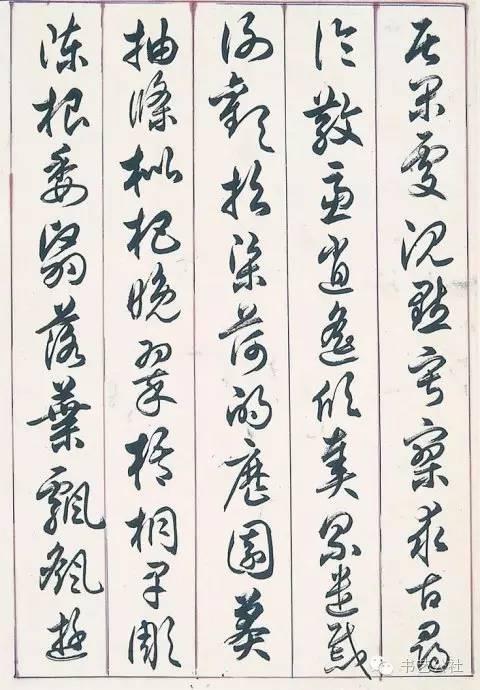 居閑處沉默寂寥求古尋
論散慮逍遙欣奏累遣慼
謝歡招渠荷的歷園莽
抽條枇杷晚翠梧桐早彫
陳根委翳落葉飄颻遊
书艺公社